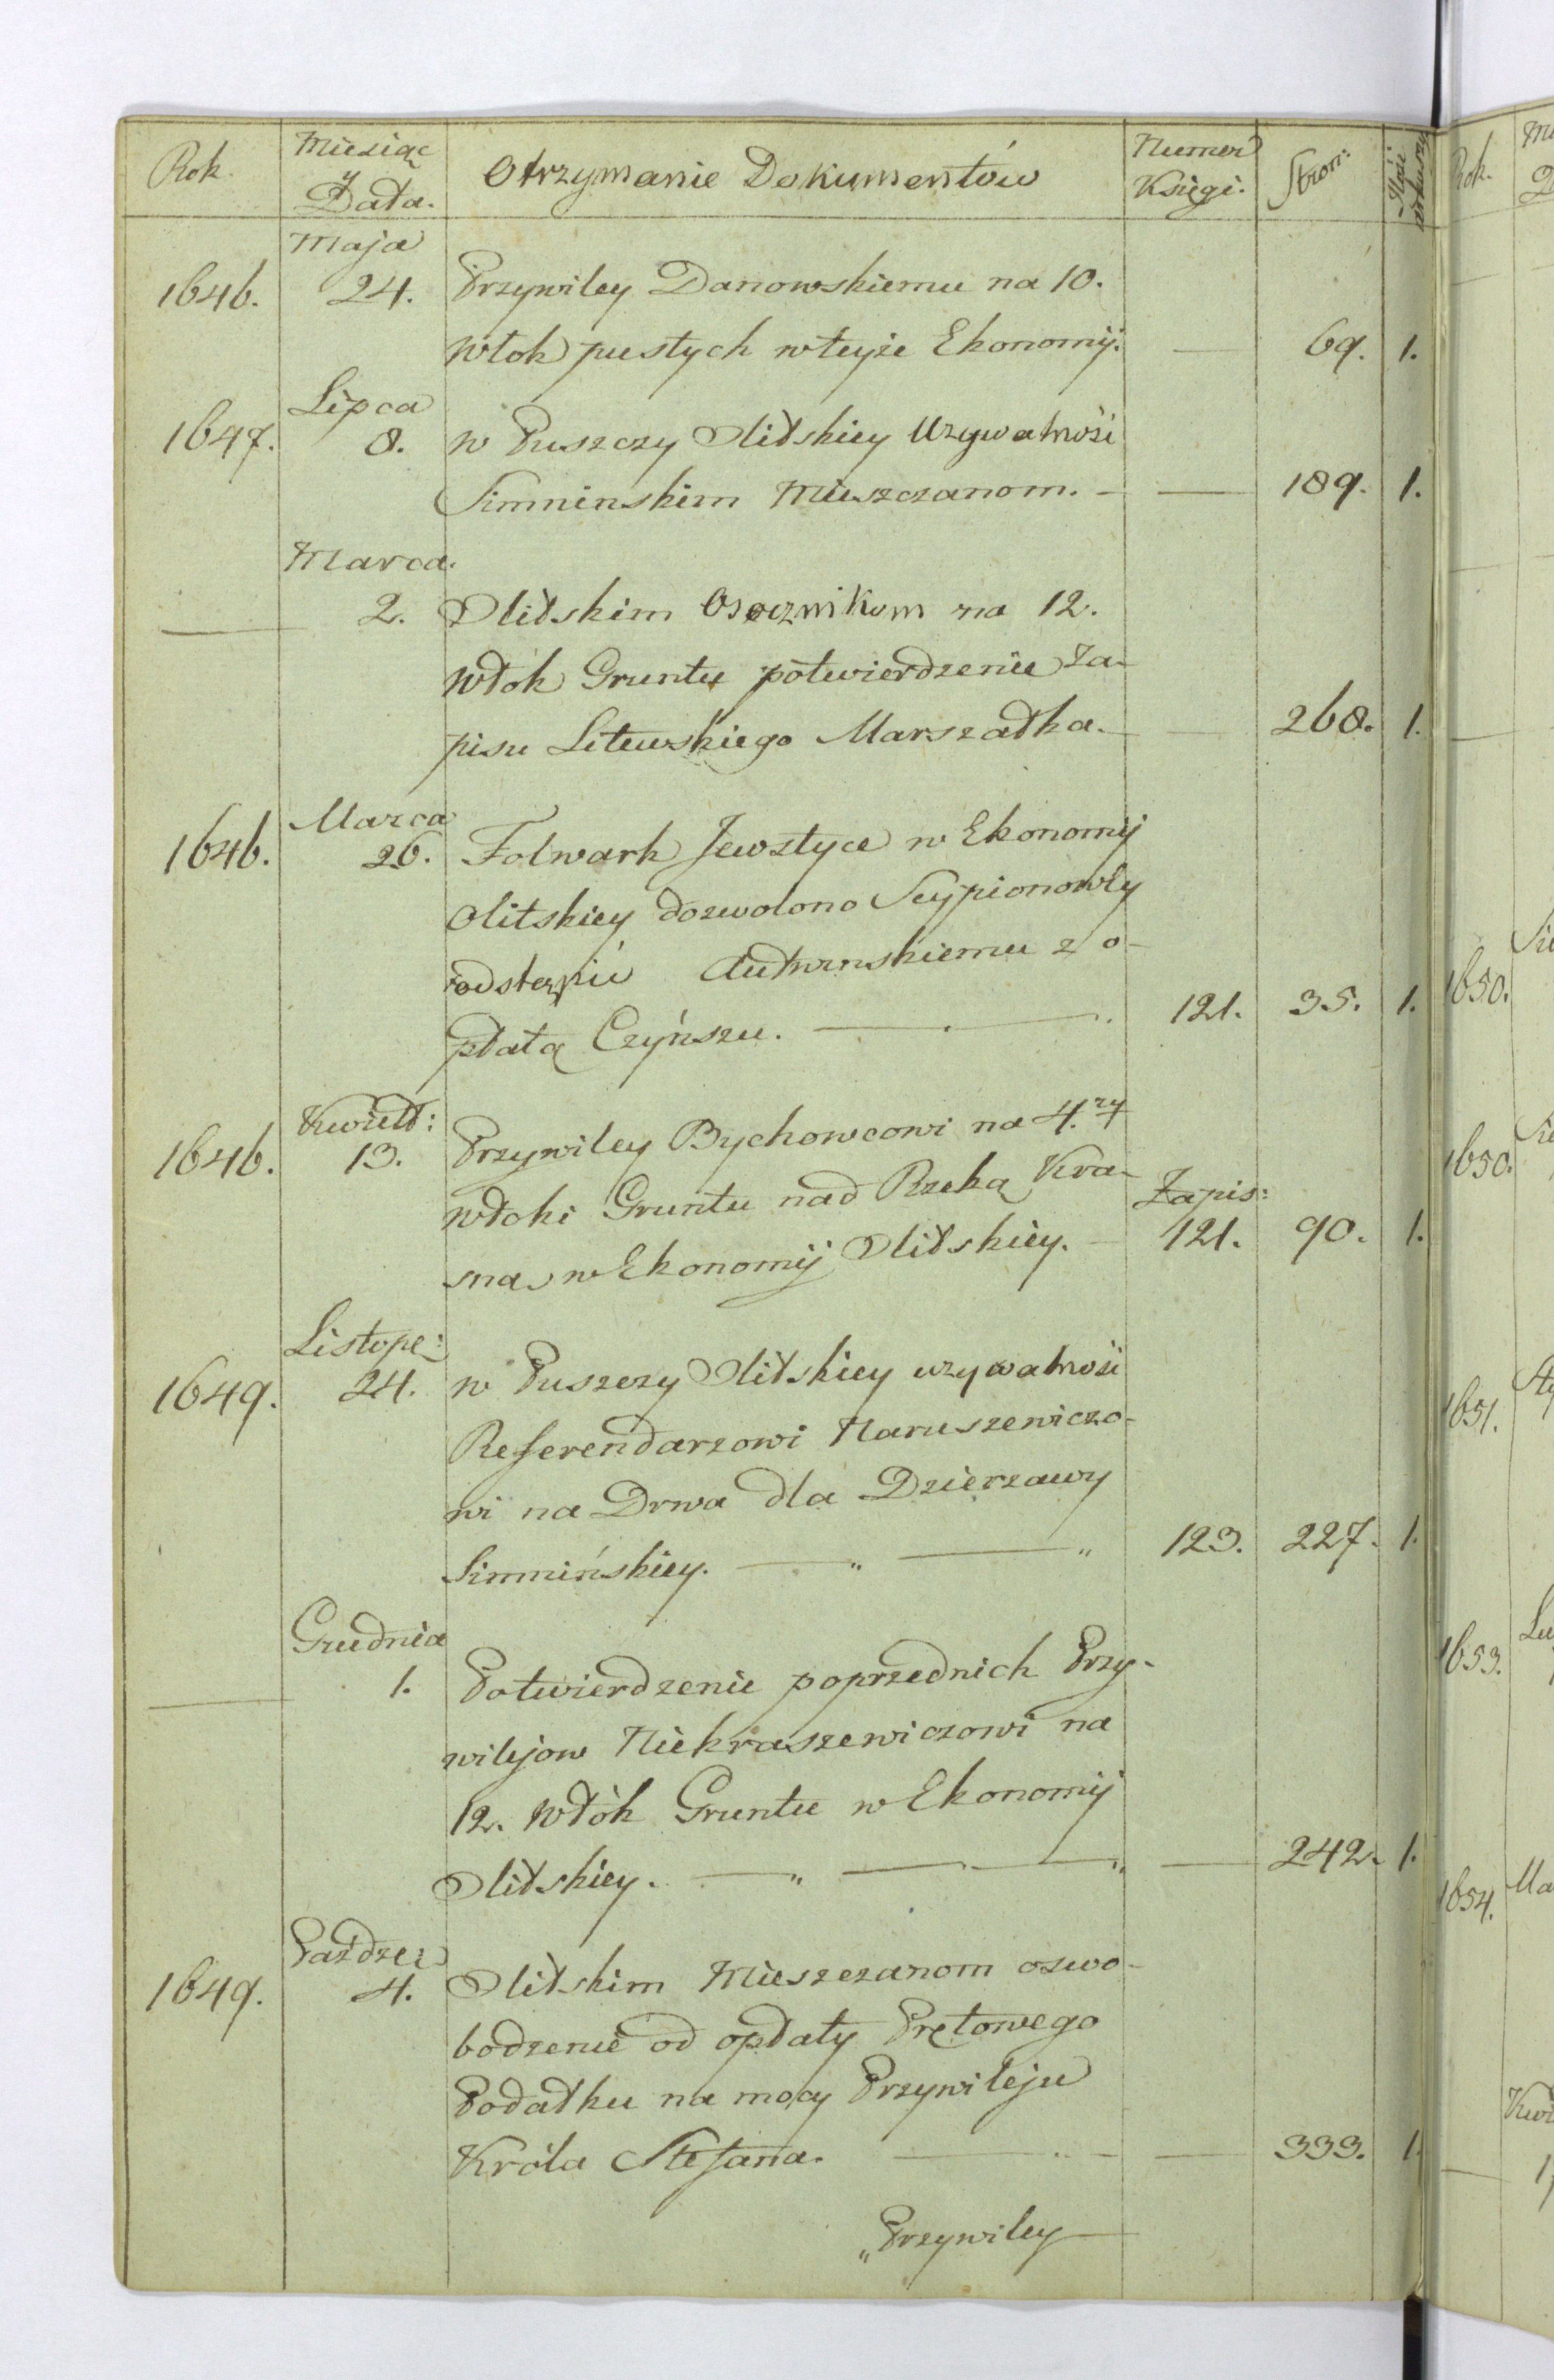 Rok. Miesiąc y Data. Otrzymanie Dokumentów Numer Księgi. Stron: Ilość arkuszy
Maja
1646. 24. Przywiley Danowskiemu na 10.
Włok pustych w teyże Ekonomij. — 69. 1.
Lipca
1647. 8. w Puszczy Olitskiey Używalność
Simninskim Mieszczanom. — — 189. 1.
Marca.
— 2. Olitskim Osocznikom na 12.
Włok Gruntu potwierdzenie Za-
pisu Litewskiego Marszałka. — 268. 1.
Marca
1646. 26. Folwark Jewstyce w Ekonomij
Olitskiey dozwolono Scypionowey
odstąpić z o-
płatą Czyńszu. — 121. 35. 1.
Kwiet:
1646. 13. Przywiley Bychowcowi na 4.ry
włoki Gruntu nad Rzeką Kra- Zapis:
sna w Ekonomij Olitskiey. — 121. 90. 1.
Listopa:
1649. 24. w Puszczy Olitskiey używalność
Referendarzowi Naruszewiczo-
wi na Drwa dla Dzierzawy
Simnińskiey. — „ — „ 123. 227. 1.
Grudnia
— 1. Potwierdzenie poprzednich Przy-
wilejow Niekraszewiczowi na
12. Włók Gruntu w Ekonomij
Olitskiey. — „ — — „ — 242. 1.
Paździer
1649. 4. Olitskim Mieszczanom oswo-
bodzenie od opłaty Prętowego
Podatku na mocy Przywileju
Króla Stefana. — — 333. 1.
„Przywiley
Rok.
1650.
1650.
1651.
1653.
1654.